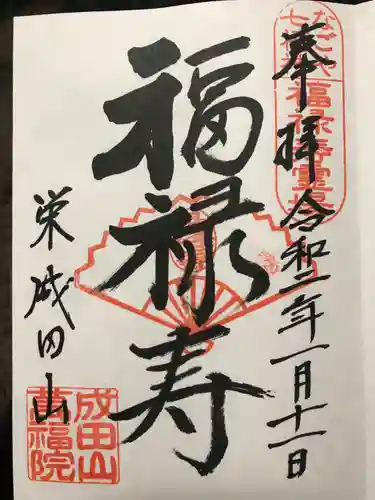 奉拝
令和二年一月十一日
なごや
七福神
福禄寿霊場
福禄寿
栄
成田山
成田山
萬福院